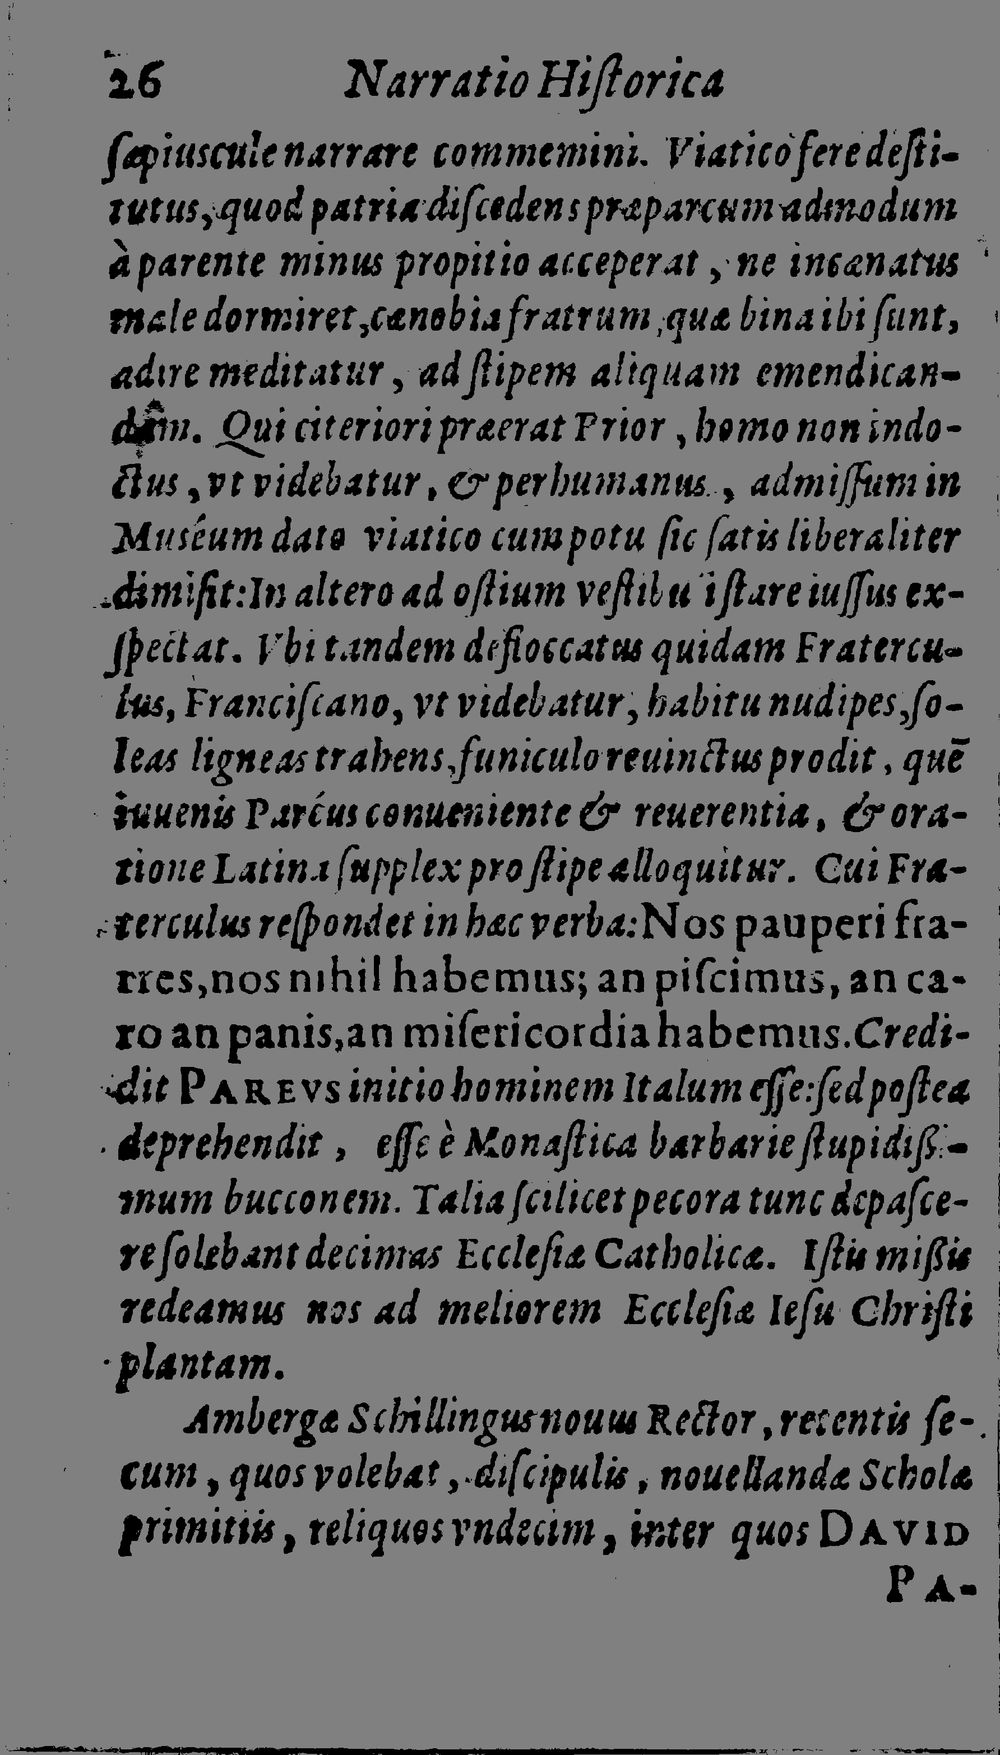 26 Narratio Hiſtorica
ſæpiuscule narrare commemini. Viatico fere deſti-
tutus, quod patria diſcedens præparcum admodum
à parente minus propitio acceperat, ne incænatus
male dormiret, cænobia fratrum, quæ bina ibi ſunt,
adire meditatur, ad ſtipem aliquam emendican-
dam. Qui citeriori præerat Prior, homo non indo-
ctus, vt videbatur, & perhumanus, admiſſum in
Muséum dato viatico cum potu ſic ſatis liberaliter
dimiſit: In altero ad oſtium veſtibuli ſtare iuſſus ex-
ſpectat. Vbi tandem defloccatus quidam Fratercu-
lus, Franciſcano, vt videbatur, habitu nudipes, ſo-
leas ligneas trahens, funiculo reuinctus prodit, quē
iuuenis Paréus conueniente & reuerentia, & ora-
tione Latina ſupplex pro ſtipe alloquitur. Cui Fra-
terculus reſpondet in hæc verba: Nos pauperi fra-
tres, nos nihil habemus; an piſcimus, an ca-
ro an panis, an miſericordia habemus. Credi-
dit PAREVS initio hominem Italum eſſe: ſed poſtea
deprehendit, eſſe è Monaſtica barbarie ſtupidißi-
mum bucconem. Talia ſcilicet pecora tunc depaſce-
re ſolebant decimas Eccleſiæ Catholicæ. Iſtis mißis
redeamus nos ad meliorem Eccleſiæ Ieſu Chriſti
plantam.
Ambergæ Schillingus nouus Rector, retentis ſe-
cum, quos volebat, diſcipulis, nouellandæ Scholæ
primitiis, reliquos vndecim, inter quos DAVID
PA-